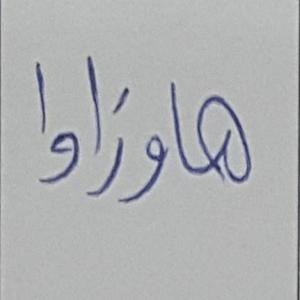 هاوڕاوا